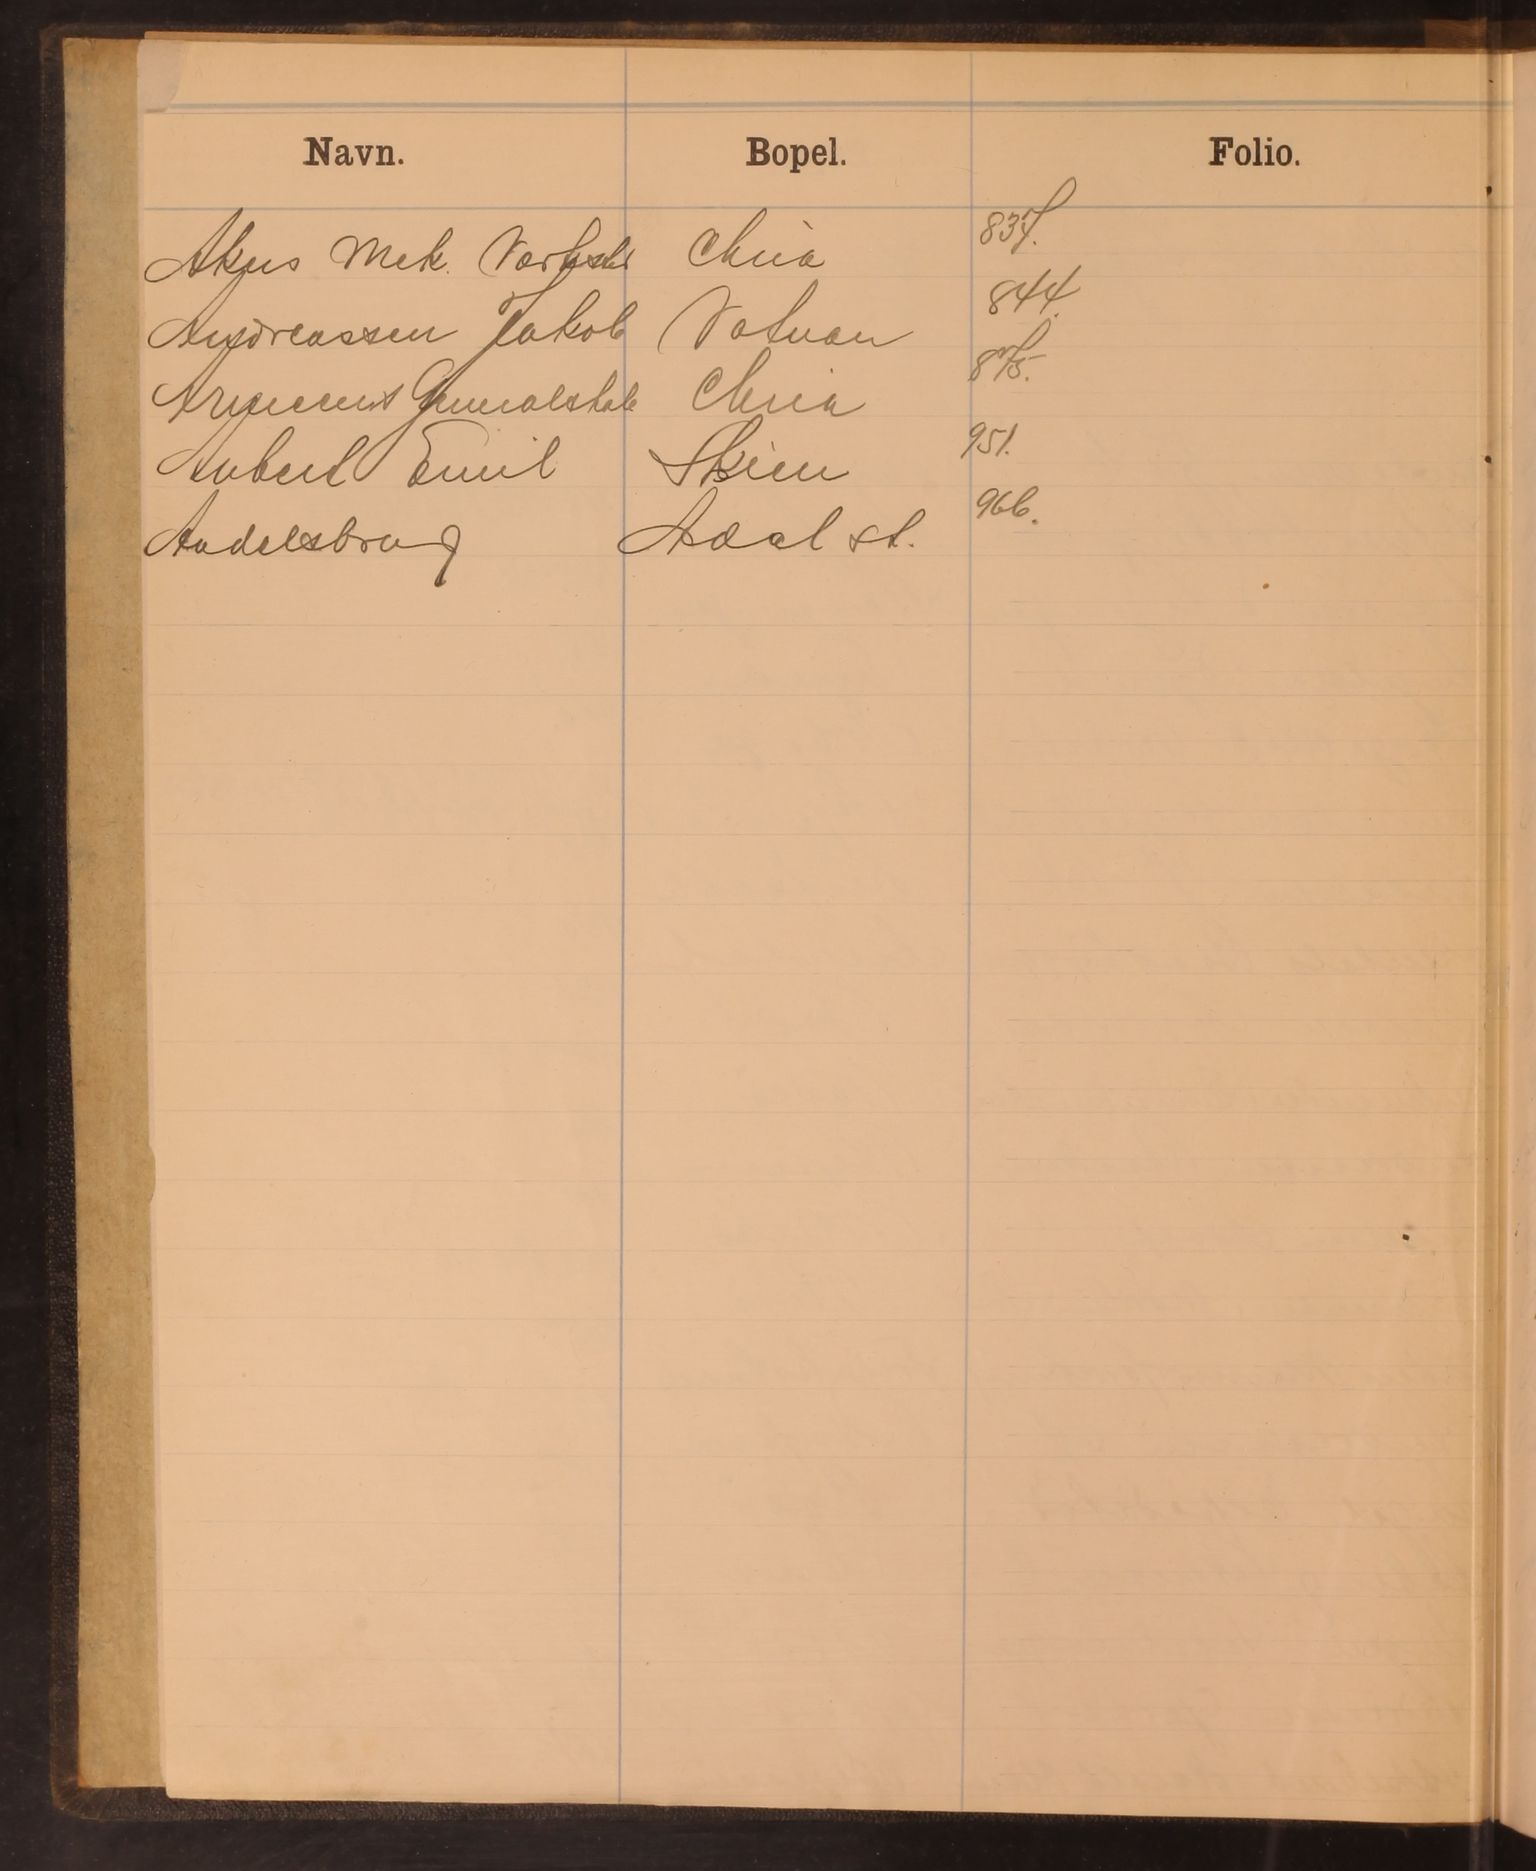 Navn. Bopel. Folio.
Akers Mek. Værksted Chria 837.
Andreassen Jakob Votnan 844.
Armeens Generalstab Chria 875.
Aubert Emil Skien 951.
Andelsbrug Adal st. 966.